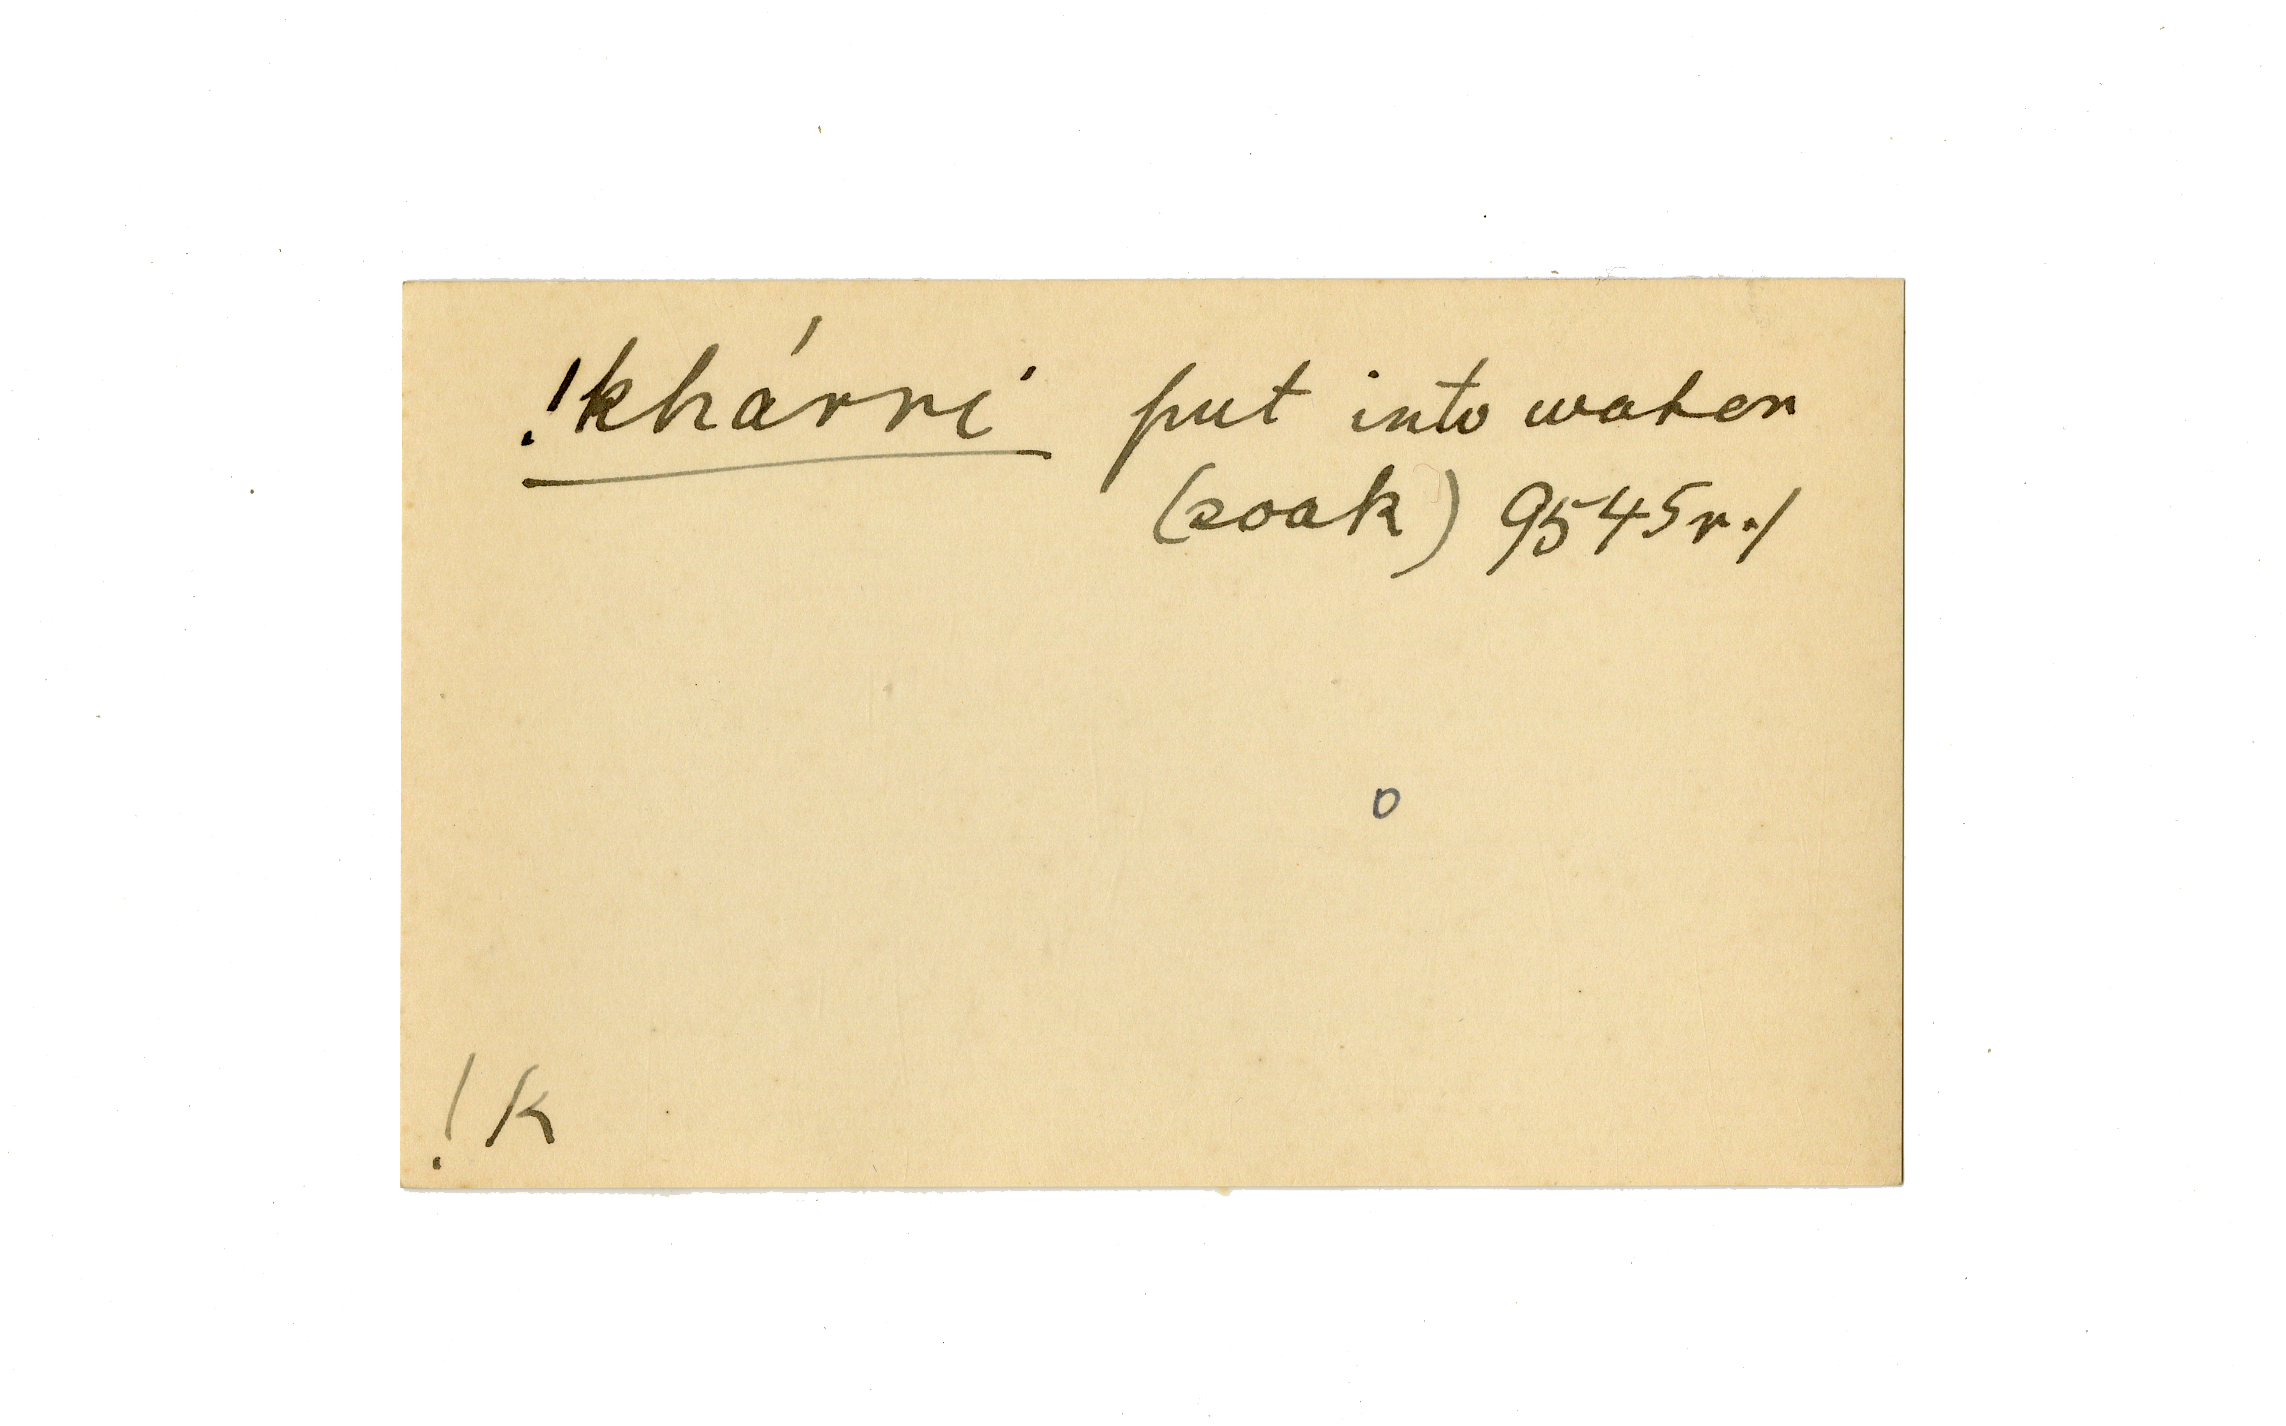 !khárri put into water
(soak) 9545r./
o
!k